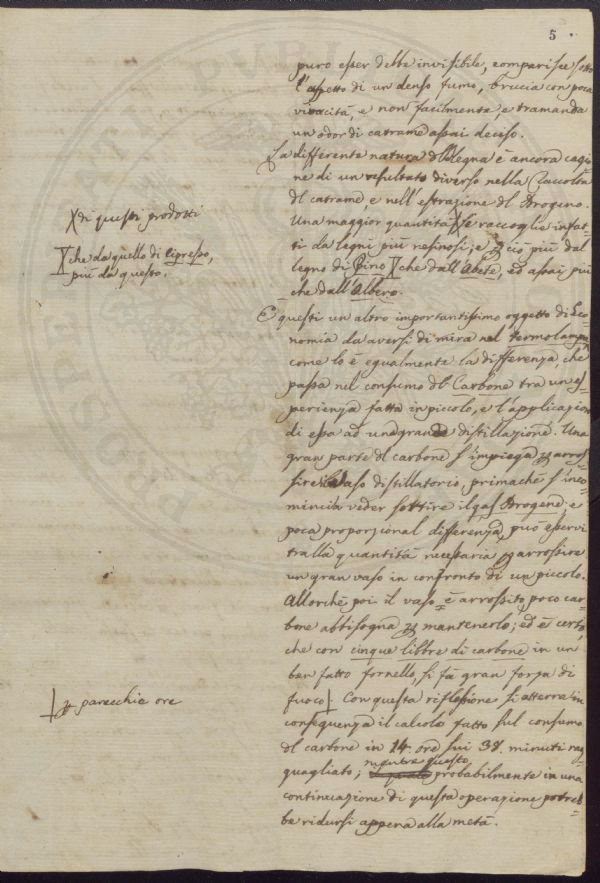 5
puro esser debbe invisibile, comparisce sotto
l'aspetto di un denso fumo, brucia con poca
vivacità, e non facilmente, e tramanda
un odor di catrame assai deciso.
La differente natura dl Legna è ancora cagio
ne di un resultato diverso nella Raccolta
dl catrame, e nell'estrazione dl Idrogeno.
Una maggior quantità X se raccoglie infat-
ti da legni più resinosi; e ciò più dal
legno di Pino X che dall'Abete, ed assai più
che dall'Albero.
E' questi un altro importantissimo oggetto di Eco
nomia da aversi di mira nel termolampo
come lo è egualmente la differenza, che
passa nel consumo dl Carbone tra un es-
perienza fatta in piccolo, e l'applicazion
di essa ad una grande distillazione. Una
gran parte dl carbone s'impiega p arros-
sire il vaso distillatorio, primachè s'inco-
minci a veder sortire il gas Idrogene; e
poca proporzional differenza può esservi
tralla quantità necessaria p arrossire
un gran vaso in confronto di un piccolo.
Allorchè poi il vaso è arrossito, poco car-
bone abbisogna p mantenerlo; ed è certo,
che con cinque libbre di carbone in un
ben fatto fornello, si fà gran forza di
fuoco |. Con questa riflessione si atterra in
conseguenza il calcolo fatto sul consumo
dl carbone in 14. ore sui 38. minuti rag-
guagliato; mentre questo probabilmente in una
continuazione di questa operazione potreb-
be ridursi appena alla metà.
X di questi prodotti
X che da quello di Cipresso,
più da questo.
| p parecchie ore